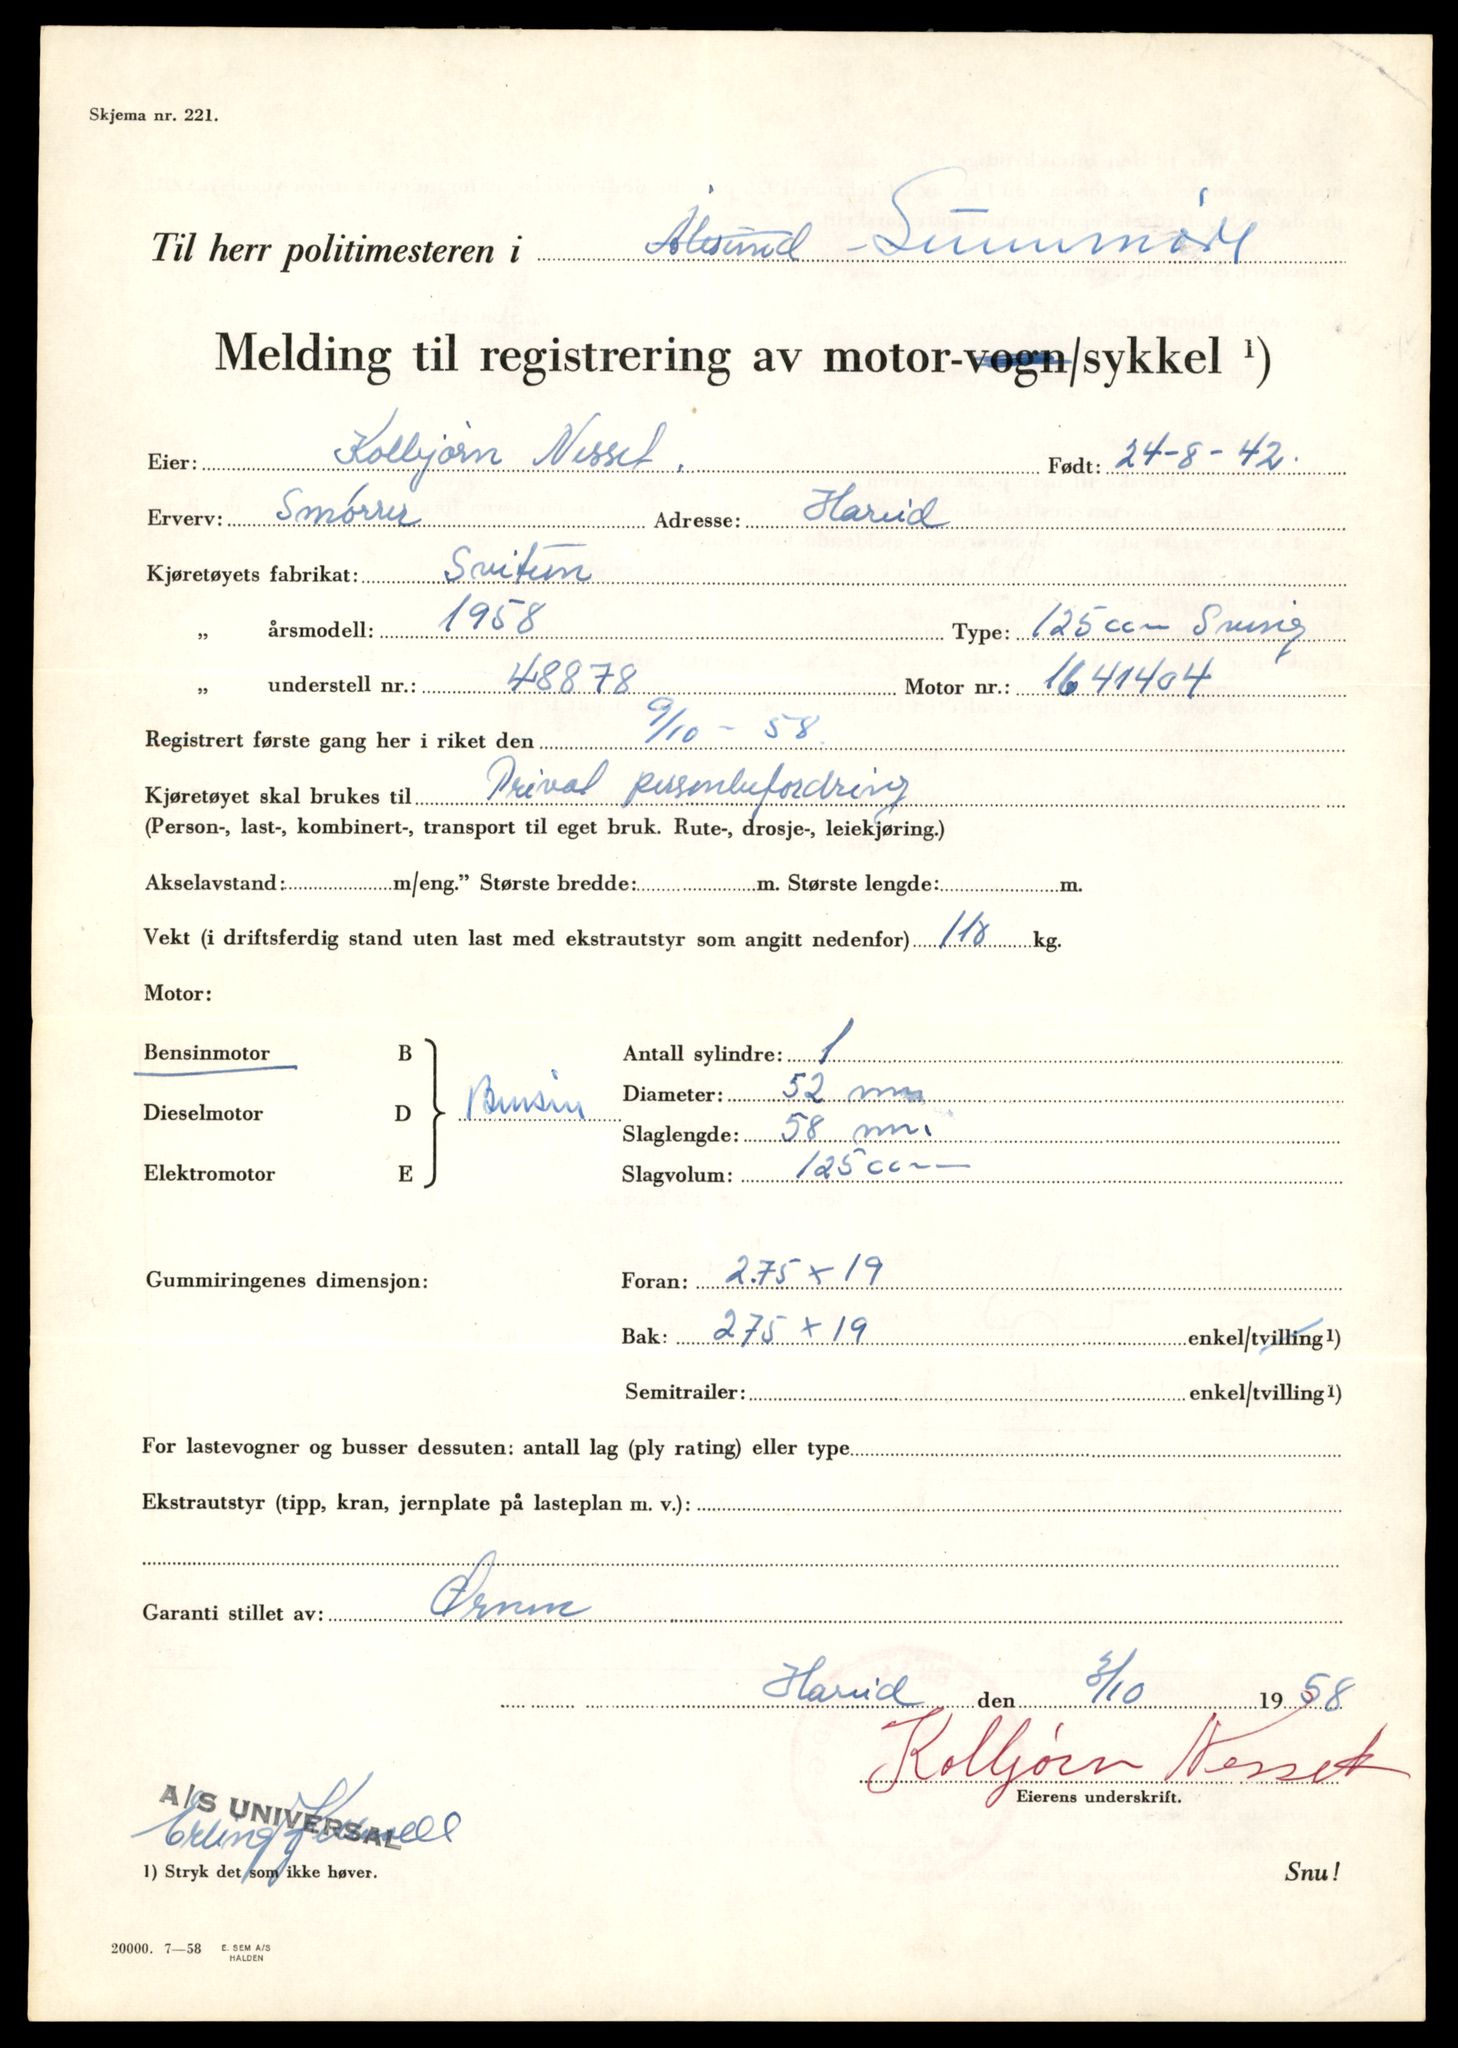 Skjema nr. 221.
Til herr politimesteren i Ålesund - Sunnmöre
Melding til registrering av motor-vogn/sykkel 1)
Eier: Kolbjörn Nesset. Født: 24-8-42.
Erverv: Smörrer Adresse: Hareid
Kjøretøyets fabrikat: Svitun
„ årsmodell: 1958 Type: 125 ccm Sving
„ understell nr.: 48878 Motor nr.: 1641404
Registrert første gang her i riket den 9/10 - 58.
Kjøretøyet skal brukes til Privat personbefordring
(Person-, last-, kombinert-, transport til eget bruk. Rute-, drosje-, leiekjøring.)
Akselavstand: m/eng.” Største bredde: m. Største lengde: m.
Vekt (i driftsferdig stand uten last med ekstrautstyr som angitt nedenfor) 118 kg.
Motor:
Bensinmotor B Antall sylindre: 1
Diameter: 52 mm
Dieselmotor D Bensin
Slaglengde: 58 mm.
Elektromotor E Slagvolum: 125 ccm
Gummiringenes dimensjon: Foran: 2.75 x 19
Bak: 275 x 19 enkel/tvilling1)
Semitrailer: enkel/tvilling1)
For lastevogner og busser dessuten: antall lag (ply rating) eller type
Ekstrautstyr (tipp, kran, jernplate på lasteplan m. v.):
Garanti stillet av: Ørnen
Hareid den 8/10 19 58
Kolbjørn Nesset
Eierens underskrift.
A/S UNIVERSAL
Erling
1) Stryk det som ikke høver.
Snu!
20000. 7—58 E. SEM A/S
HALDEN